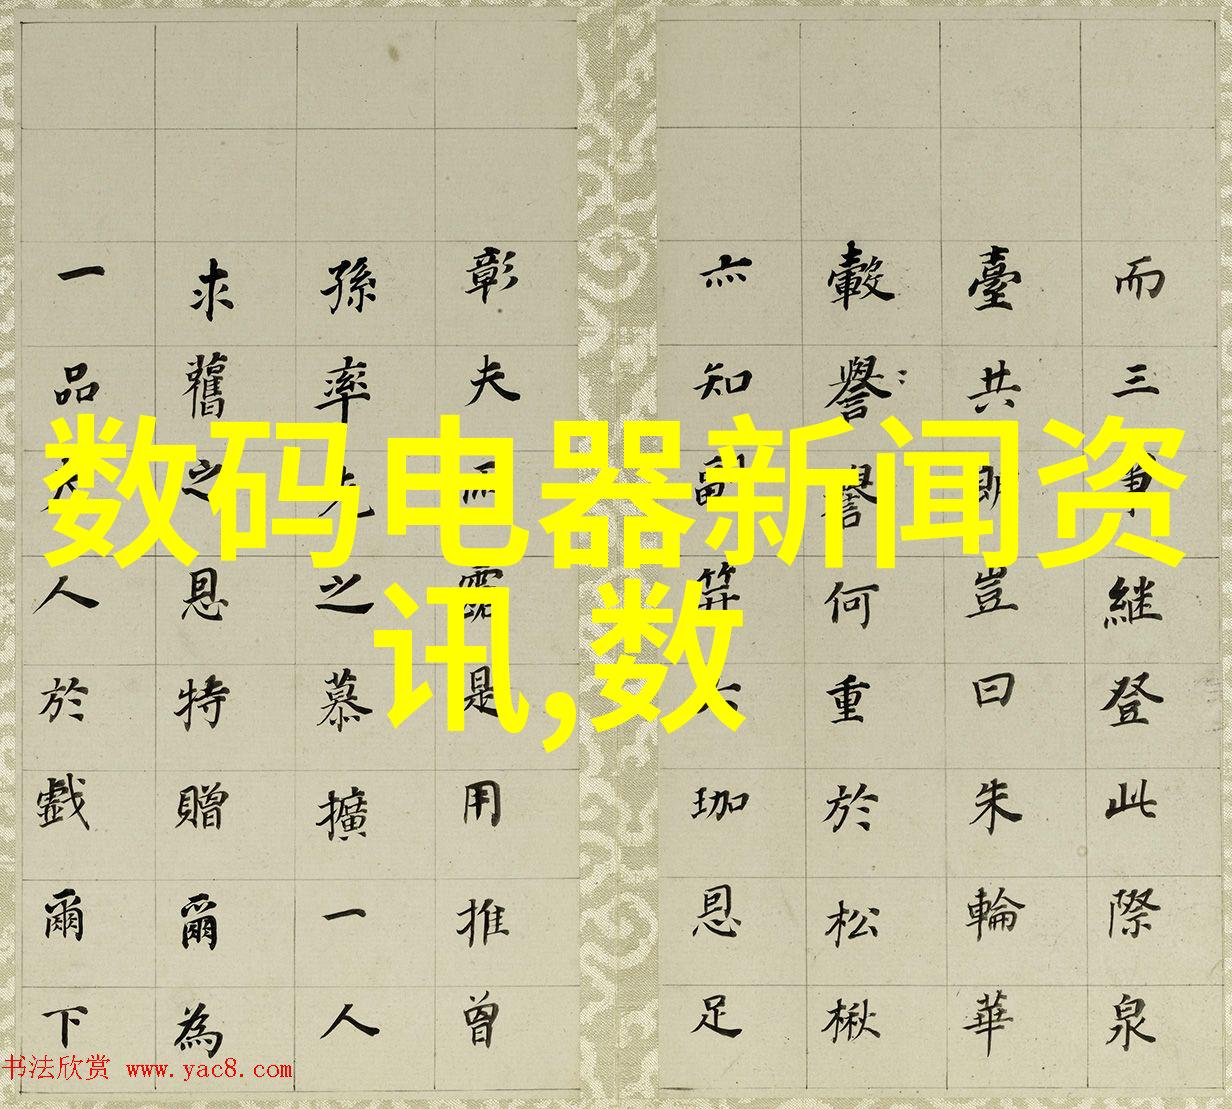 数码电器新闻资
讯,数
而三事継登此際泉
臺共朗豈曰朱輪華
轂譽譽何重於松楸
亦知副笄六珈恩足
彰夫而是用推曾
孫率先之慕擴一人
求舊之恩特贈爾為
一品夫人於戲爾下
书法欣赏 www.yac8.com